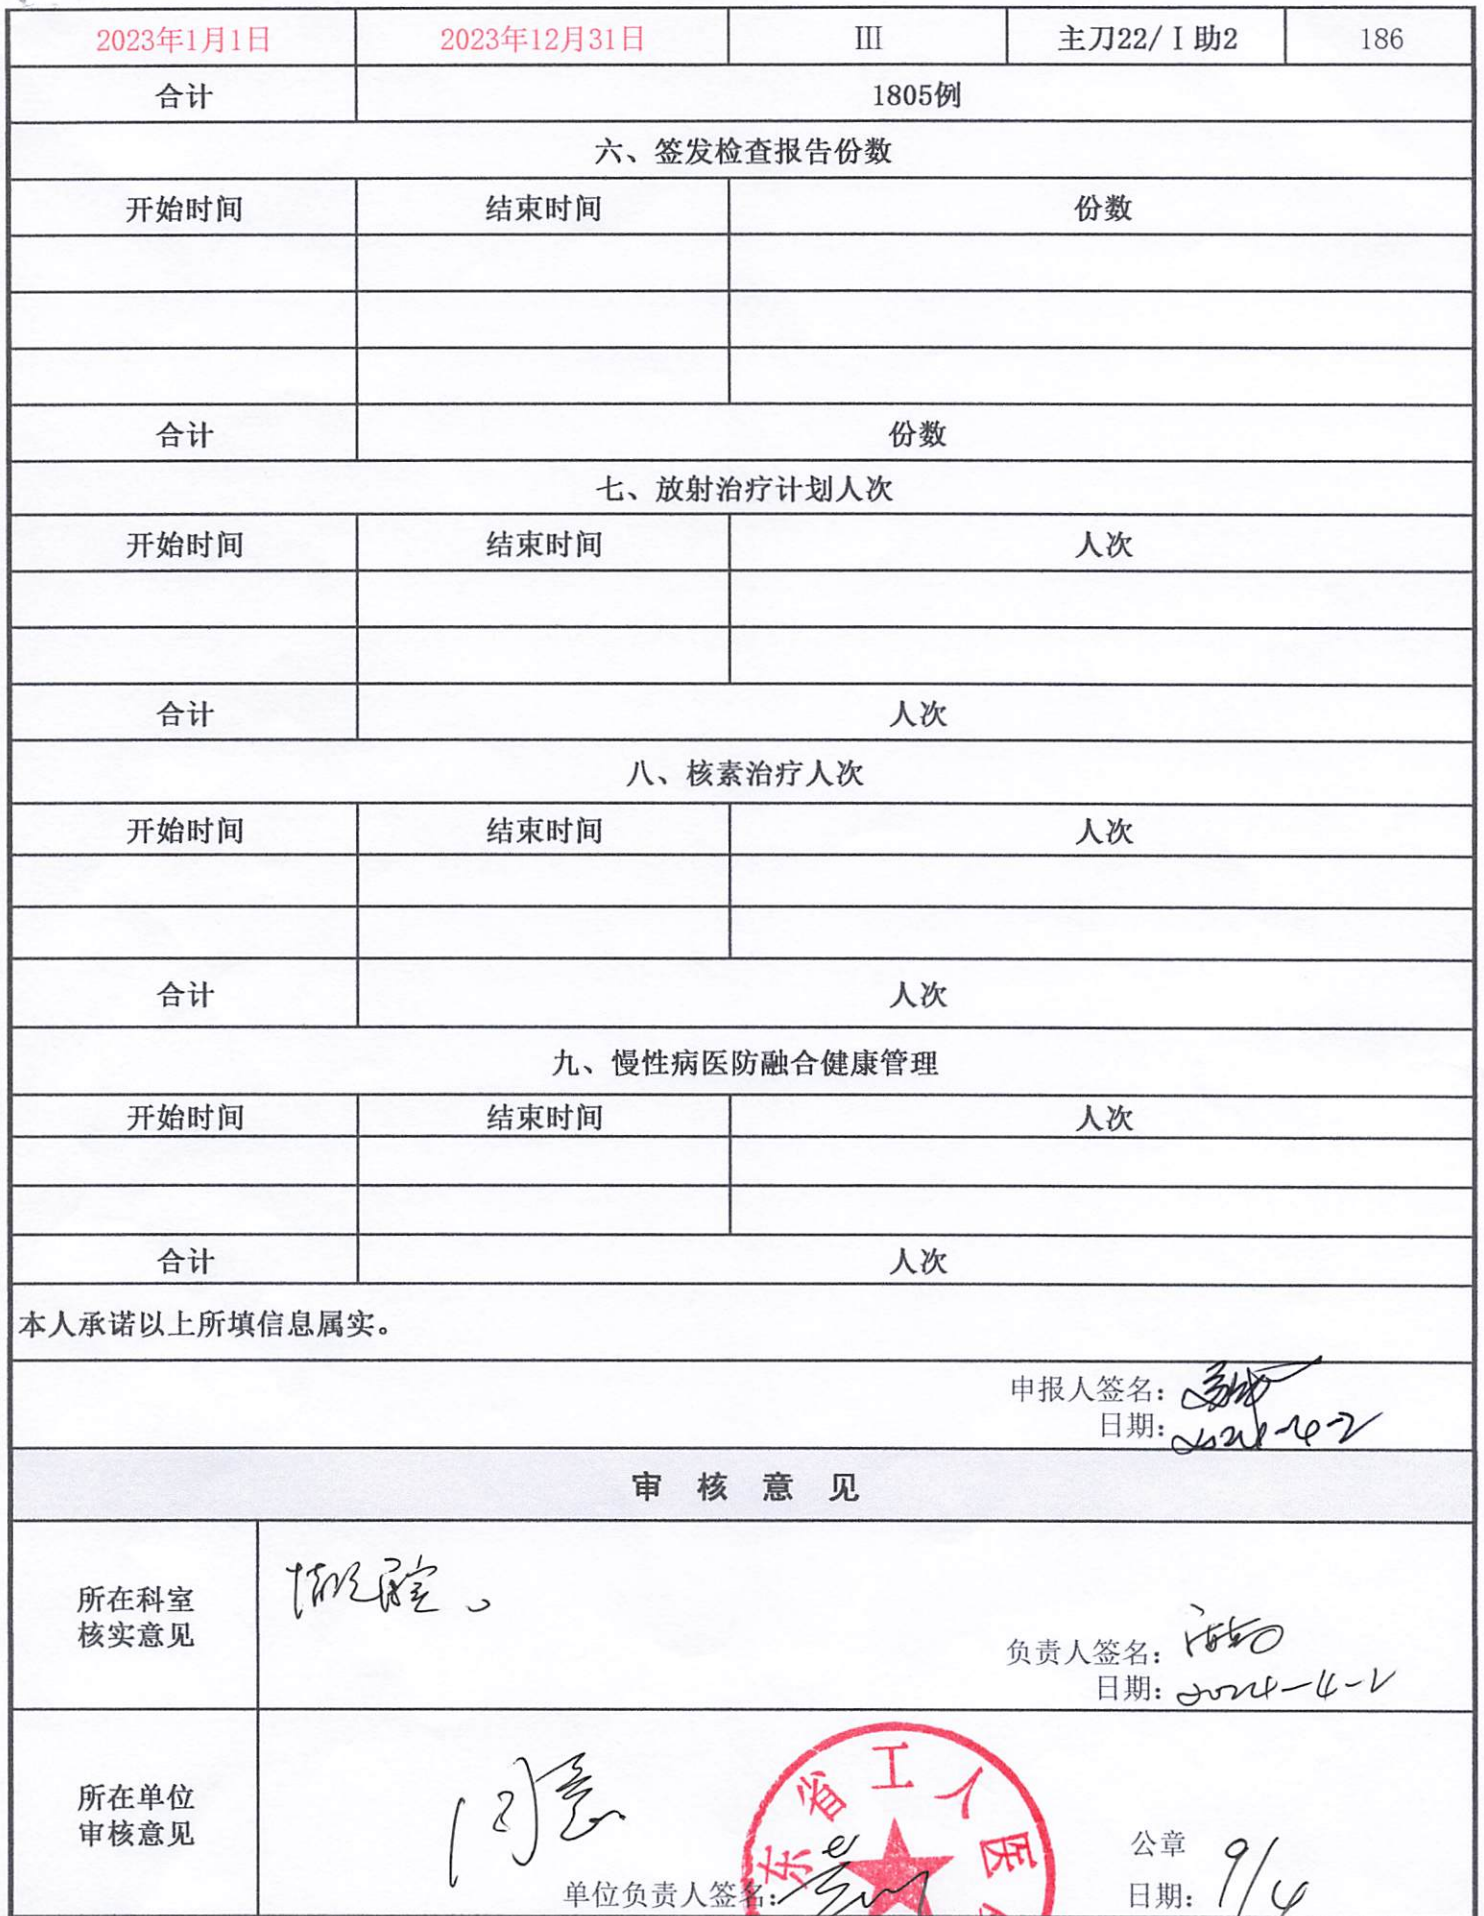 2023年1月1日 2023年12月31日 III 主刀22/Ⅰ助2 186
合计 1805例
六、签发检查报告份数
开始时间 结束时间 份数
合计 份数
七、放射治疗计划人次
开始时间 结束时间 人次
合计 人次
八、核素治疗人次
开始时间 结束时间 人次
合计 人次
九、慢性病医防融合健康管理
开始时间 结束时间 人次
合计 人次
本人承诺以上所填信息属实。
申报人签名：
日期：2024-4-2
审核意见
所在科室
核实意见
情况属实。
负责人签名：
日期：2024-4-2
所在单位
审核意见
同意
东省工人医
公章
单位负责人签名：
日期：9/4